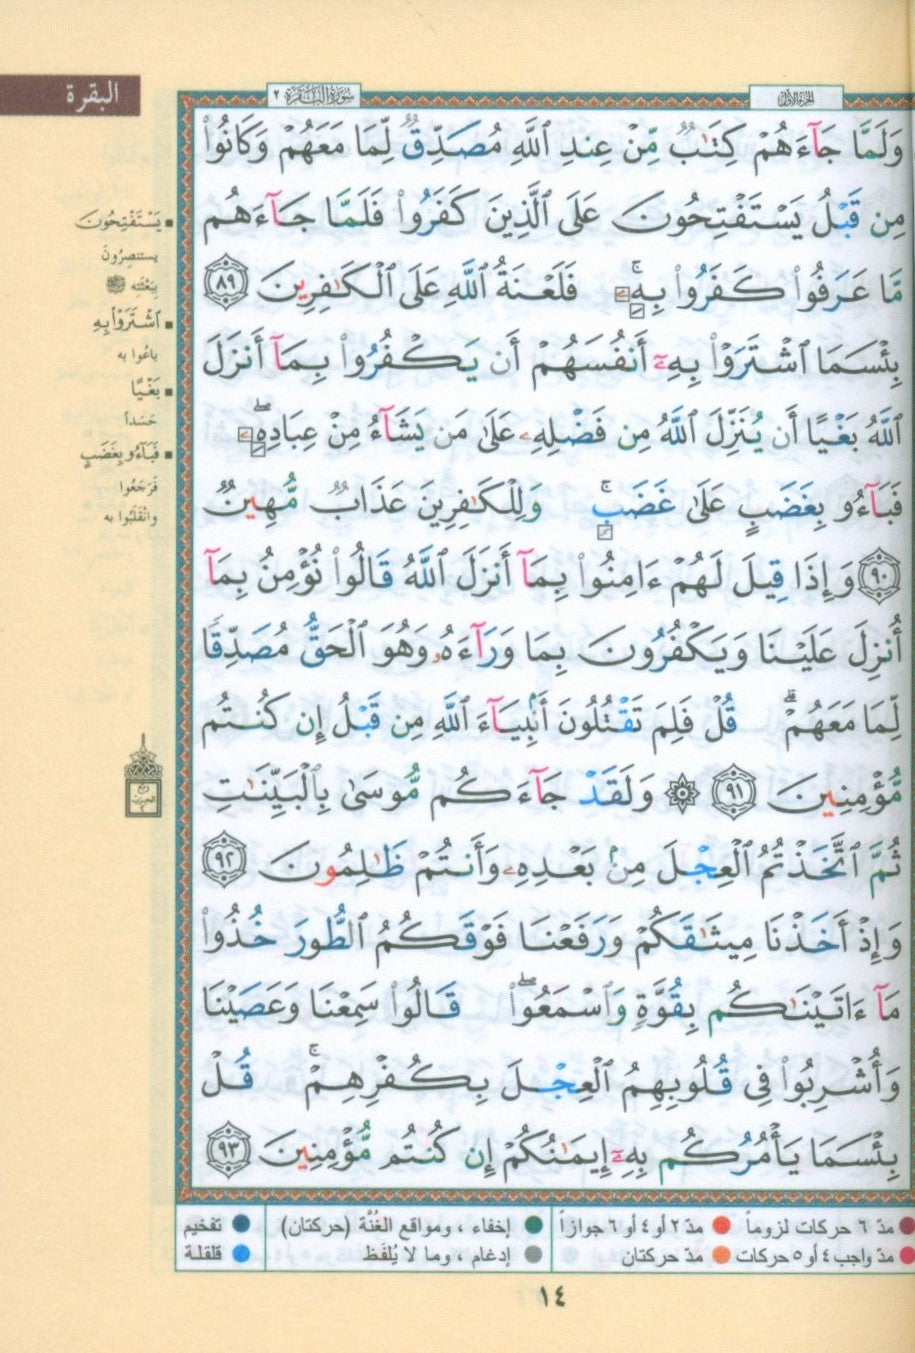 البقرة
سورة البقرة ٢
الجزء الأول
وَلَمَّا جَآءَهُمْ كِتَٰبٌ مِّنْ عِندِ ٱللَّهِ مُصَدِّقٌ لِّمَا مَعَهُمْ وَكَانُوا۟
مِن قَبْلُ يَسْتَفْتِحُونَ عَلَى ٱلَّذِينَ كَفَرُوا۟ فَلَمَّا جَآءَهُم
مَّا عَرَفُوا۟ كَفَرُوا۟ بِهِۦ ۚ فَلَعْنَةُ ٱللَّهِ عَلَى ٱلْكَٰفِرِينَ ٨٩
بِئْسَمَا ٱشْتَرَوْا۟ بِهِۦٓ أَنفُسَهُمْ أَن يَكْفُرُوا۟ بِمَآ أَنزَلَ
ٱللَّهُ بَغْيًا أَن يُنَزِّلَ ٱللَّهُ مِن فَضْلِهِۦ عَلَىٰ مَن يَشَآءُ مِنْ عِبَادِهِۦ ۖ
فَبَآءُو بِغَضَبٍ عَلَىٰ غَضَبٍ ۚ وَلِلْكَٰفِرِينَ عَذَابٌ مُّهِينٌ
٩٠ وَإِذَا قِيلَ لَهُمْ ءَامِنُوا۟ بِمَآ أَنزَلَ ٱللَّهُ قَالُوا۟ نُؤْمِنُ بِمَآ
أُنزِلَ عَلَيْنَا وَيَكْفُرُونَ بِمَا وَرَآءَهُۥ وَهُوَ ٱلْحَقُّ مُصَدِّقًا
لِّمَا مَعَهُمْ ۗ قُلْ فَلِمَ تَقْتُلُونَ أَنۢبِيَآءَ ٱللَّهِ مِن قَبْلُ إِن كُنتُم
مُّؤْمِنِينَ ٩١ ۞ وَلَقَدْ جَآءَكُم مُّوسَىٰ بِٱلْبَيِّنَٰتِ
ثُمَّ ٱتَّخَذْتُمُ ٱلْعِجْلَ مِنۢ بَعْدِهِۦ وَأَنتُمْ ظَٰلِمُونَ ٩٢
وَإِذْ أَخَذْنَا مِيثَٰقَكُمْ وَرَفَعْنَا فَوْقَكُمُ ٱلطُّورَ خُذُوا۟
مَآ ءَاتَيْنَٰكُم بِقُوَّةٍ وَٱسْمَعُوا۟ ۖ قَالُوا۟ سَمِعْنَا وَعَصَيْنَا
وَأُشْرِبُوا۟ فِى قُلُوبِهِمُ ٱلْعِجْلَ بِكُفْرِهِمْ ۚ قُلْ
بِئْسَمَا يَأْمُرُكُم بِهِۦٓ إِيمَٰنُكُمْ إِن كُنتُم مُّؤْمِنِينَ ٩٣
▪ يَسْتَفْتِحُونَ
يستنصِرُونَ
بِبَعْثَتِه ﷺ
▪ ٱشْتَرَوْا۟ بِهِ
باعُوا به
▪ بَغْيًا
حَسَداً
▪ فَبَآءُو بِغَضَبٍ
فَرَجَعُوا
وانْقَلَبُوا به
مدّ ٦ حركات لزوماً
مدّ ٢ أو ٤ أو ٦ جوازاً
إخفاء ، ومواقع الغُنَّة (حركتان)
تفخيم
مدّ واجب ٤ أو ٥ حركات
مدّ حركتان
إدغام ، وما لا يُلفَظ
قلقلة
١٤